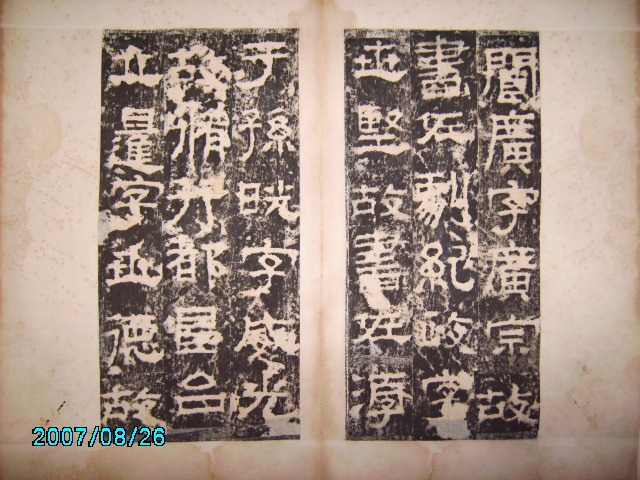 閭廣字廣宗故
書佐劇紀政字
世堅故書佐淳
于孫晄字威光
故脩行都昌台
丘暹字世德故
2007/08/26